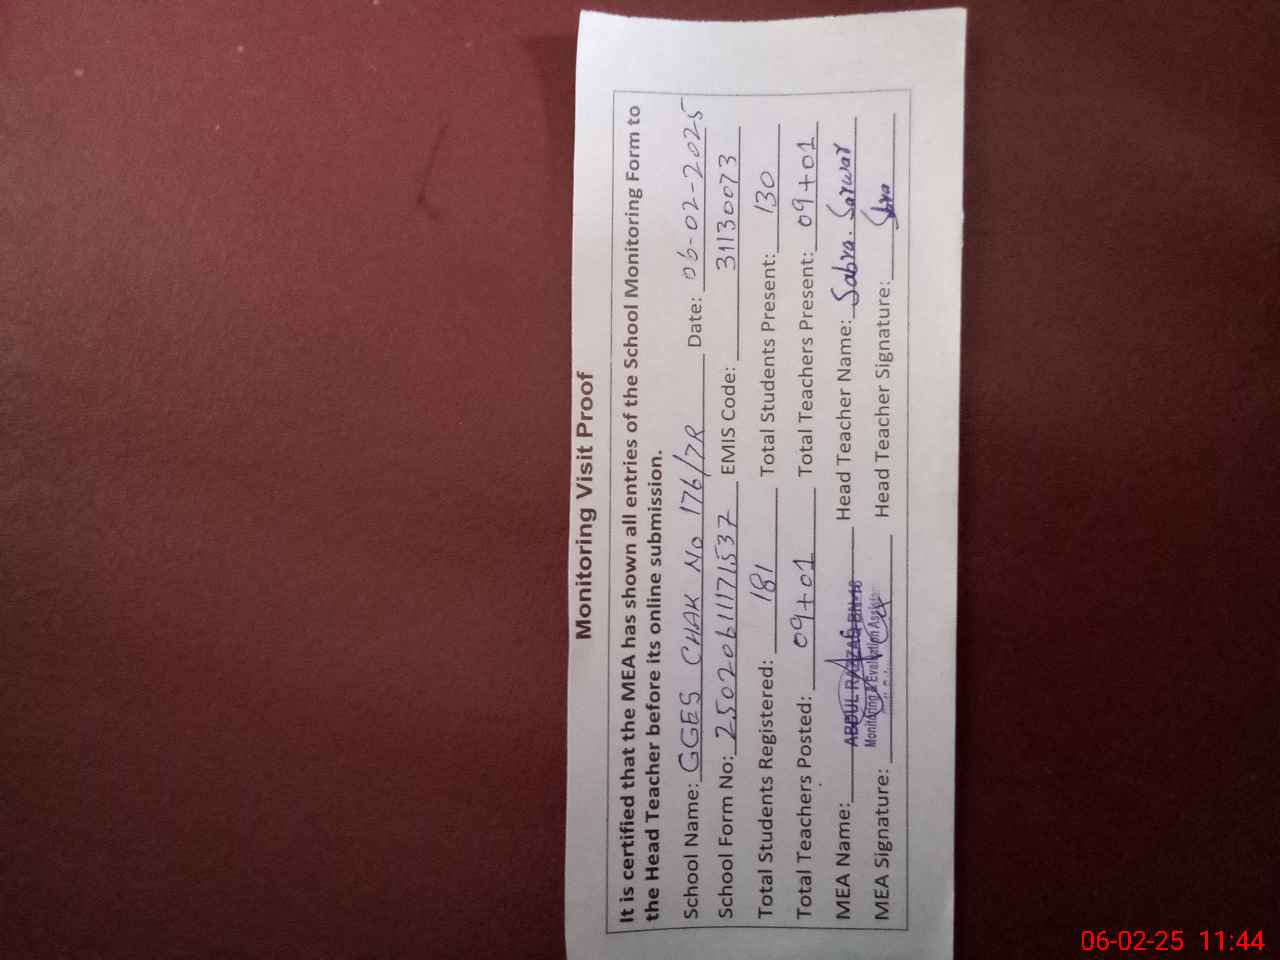 Monitoring Visit Proof
It is certified that the MEA has shown all entries of the School Monitoring Form to
the Head Teacher before its online submission.
School Name: GGES CHAK No 176/7R Date: 06-02-2025
School Form No: 25020611171537 EMIS Code: 31130073
Total Students Registered: 181 Total Students Present: 130
Total Teachers Posted: 09+01 Total Teachers Present: 09+01
MEA Name: ABDUL RAZZAQ BN-16 Head Teacher Name: Sabra. Sarwar
Monitoring & Evaluation Assistant
MEA Signature: Head Teacher Signature: Sbra
06-02-25 11:44